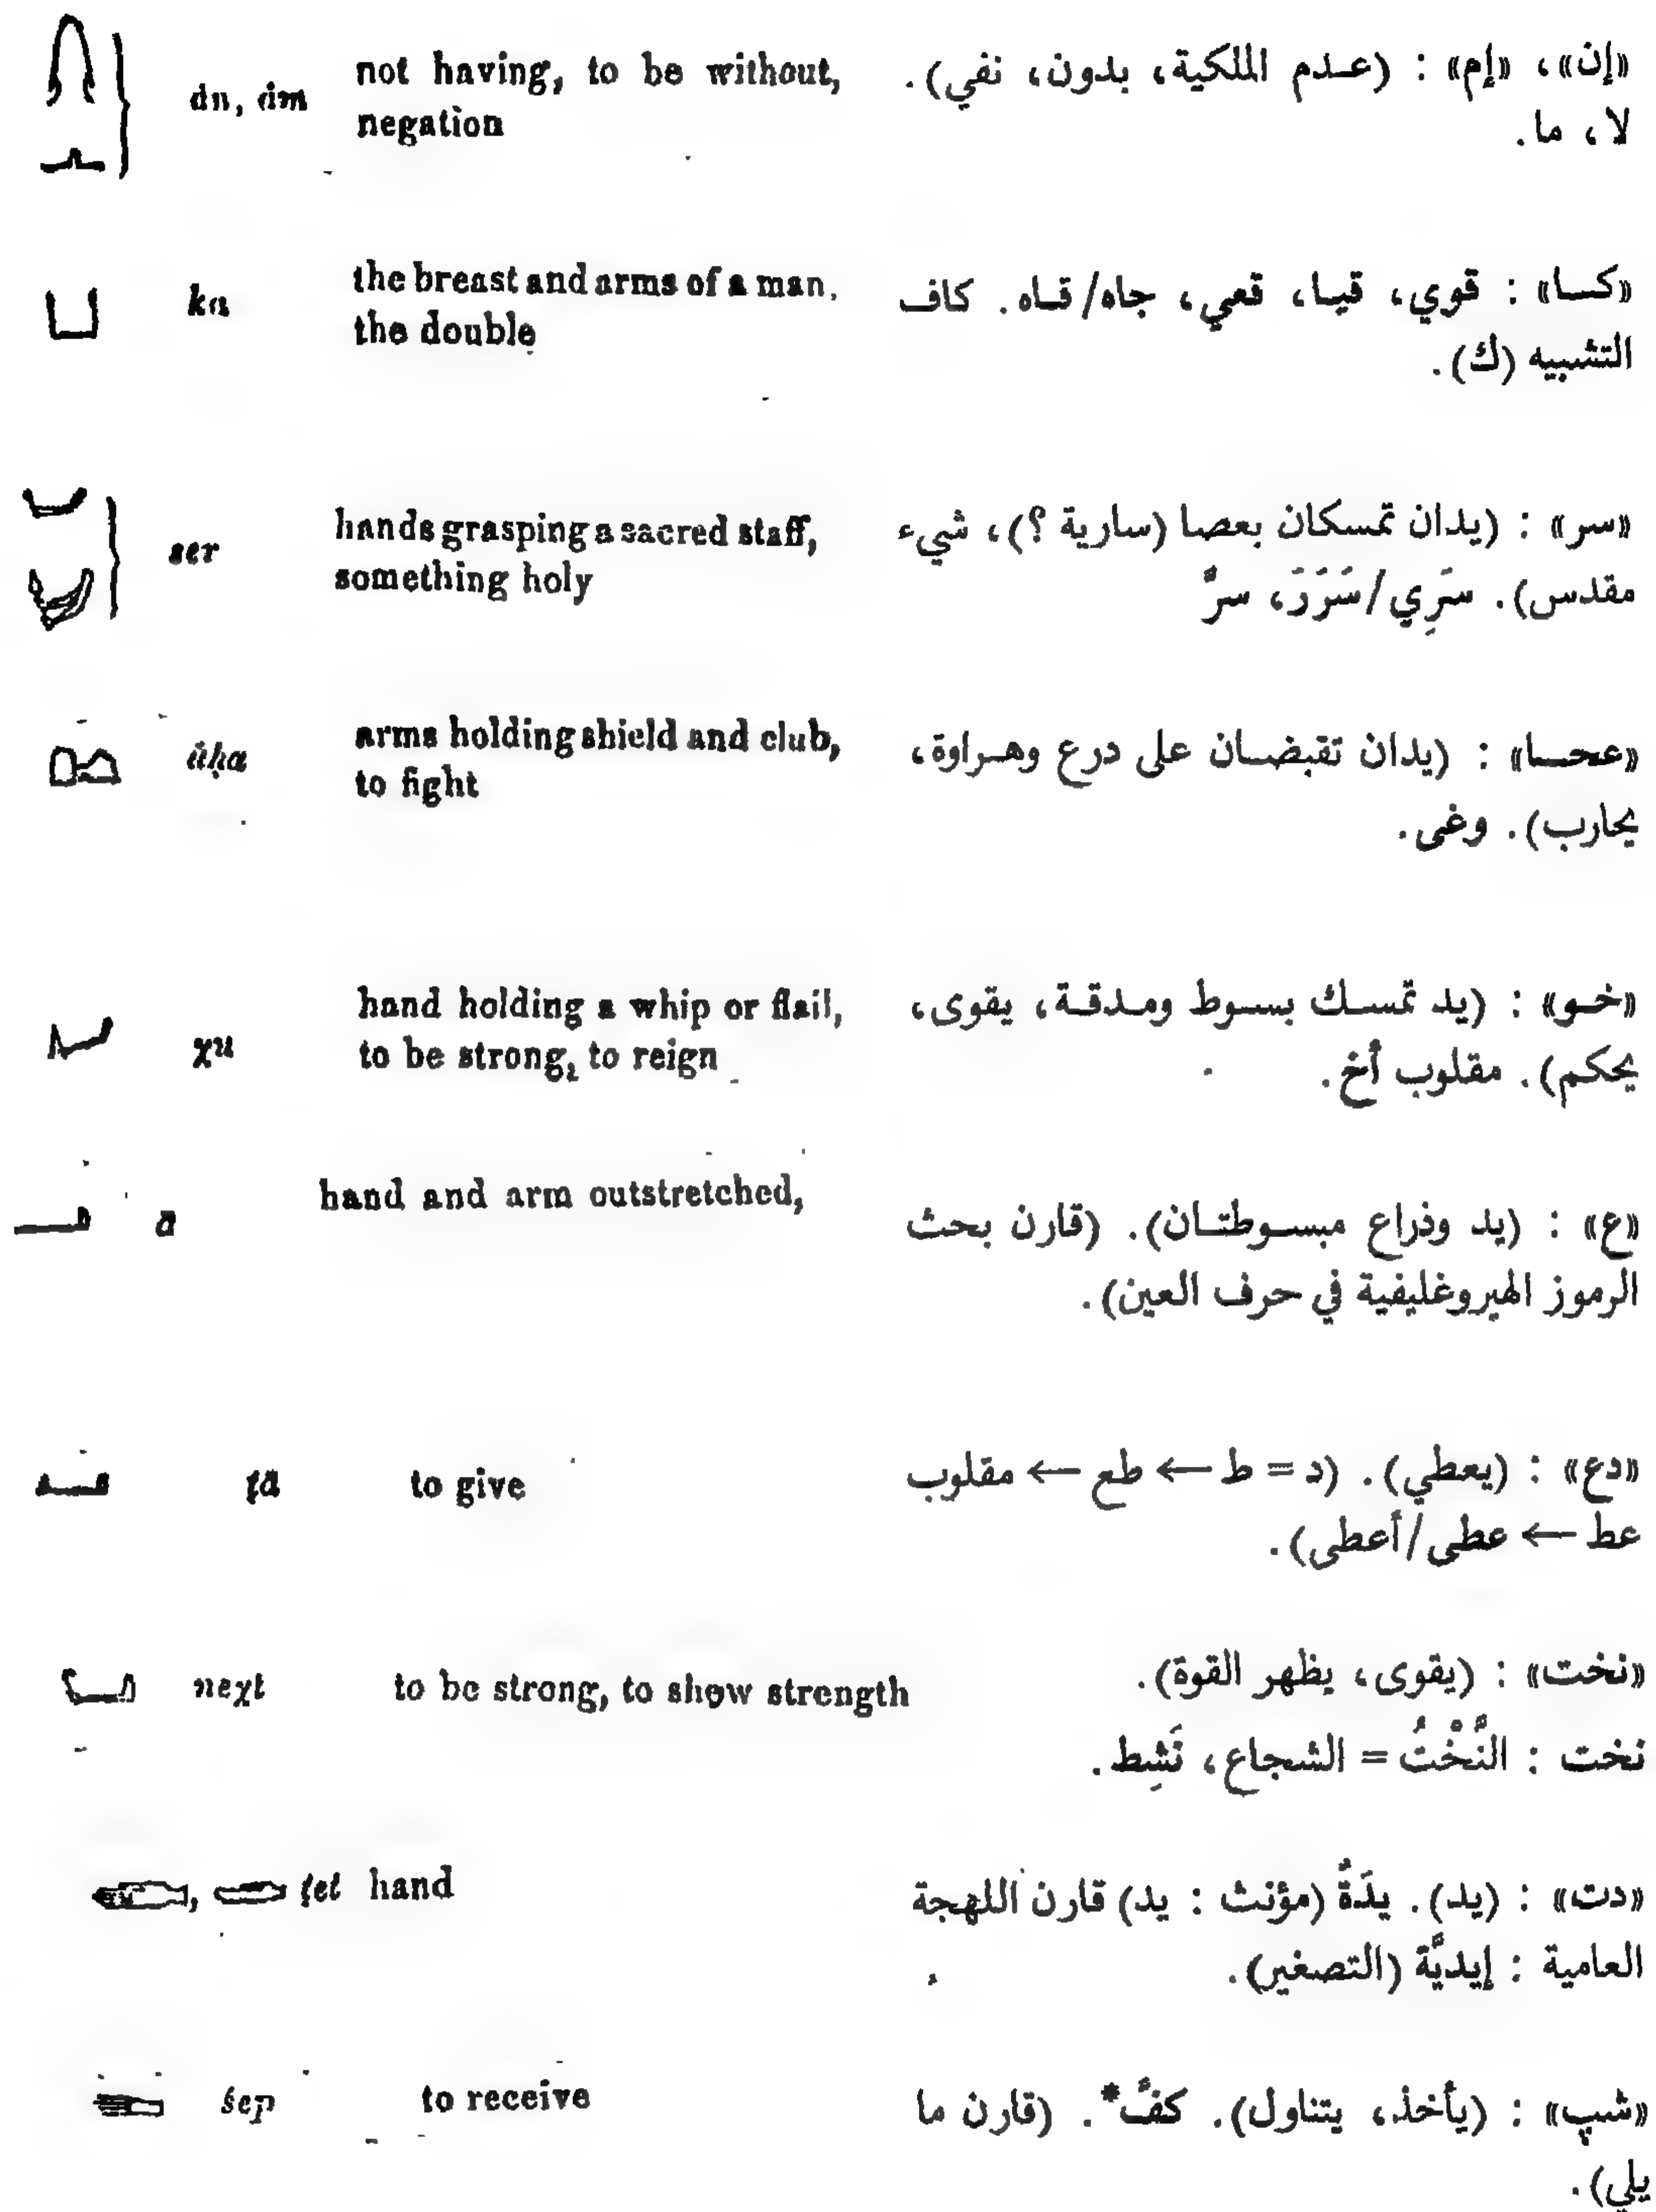 ȧn, ȧm not having, to be without, «إن»، «إم» : (عـدم الملكية، بدون، نفي).
negation لا، ما.
ka the breast and arms of a man, «كـا» : قوي، قيـا، قعي، جاه/قـاه. كاف
the double التشبيه (ك).
ser hands grasping a sacred staff, «سر» : (يدان تمسكان بعصا (سارية ؟)، شيء
something holy مقدس). سَرِي/سَرَرَ، سرٌّ
āḥa arms holding shield and club, «عحـا» : (يدان تقبضـان على درع وهـراوة،
to fight يحارب). وغى.
χu hand holding a whip or flail, «خـو» : (يد تمسـك بسـوط ومـدقـة، يقوى،
to be strong, to reign يحكم). مقلوب أخ.
ā hand and arm outstretched, «ع» : (يد وذراع مبسـوطتـان). (قارن بحث
الرموز الهيروغليفية في حرف العين).
ṭā to give «دع» : (يعطي). (د = ط ← طع ← مقلوب
عط ← عطى/أعطى).
neχt to be strong, to show strength «نخت» : (يقوى، يظهر القوة).
نخت : النَّخْتُ = الشجاع، نَشِط.
, ṭet hand «دت» : (يد). يدَةٌ (مؤنث : يد) قارن اللهجة
العامية : إيديَّة (التصغير).
śep to receive «شپ» : (يأخذ، يتناول). كفٌّ*. (قارن ما
يلي).